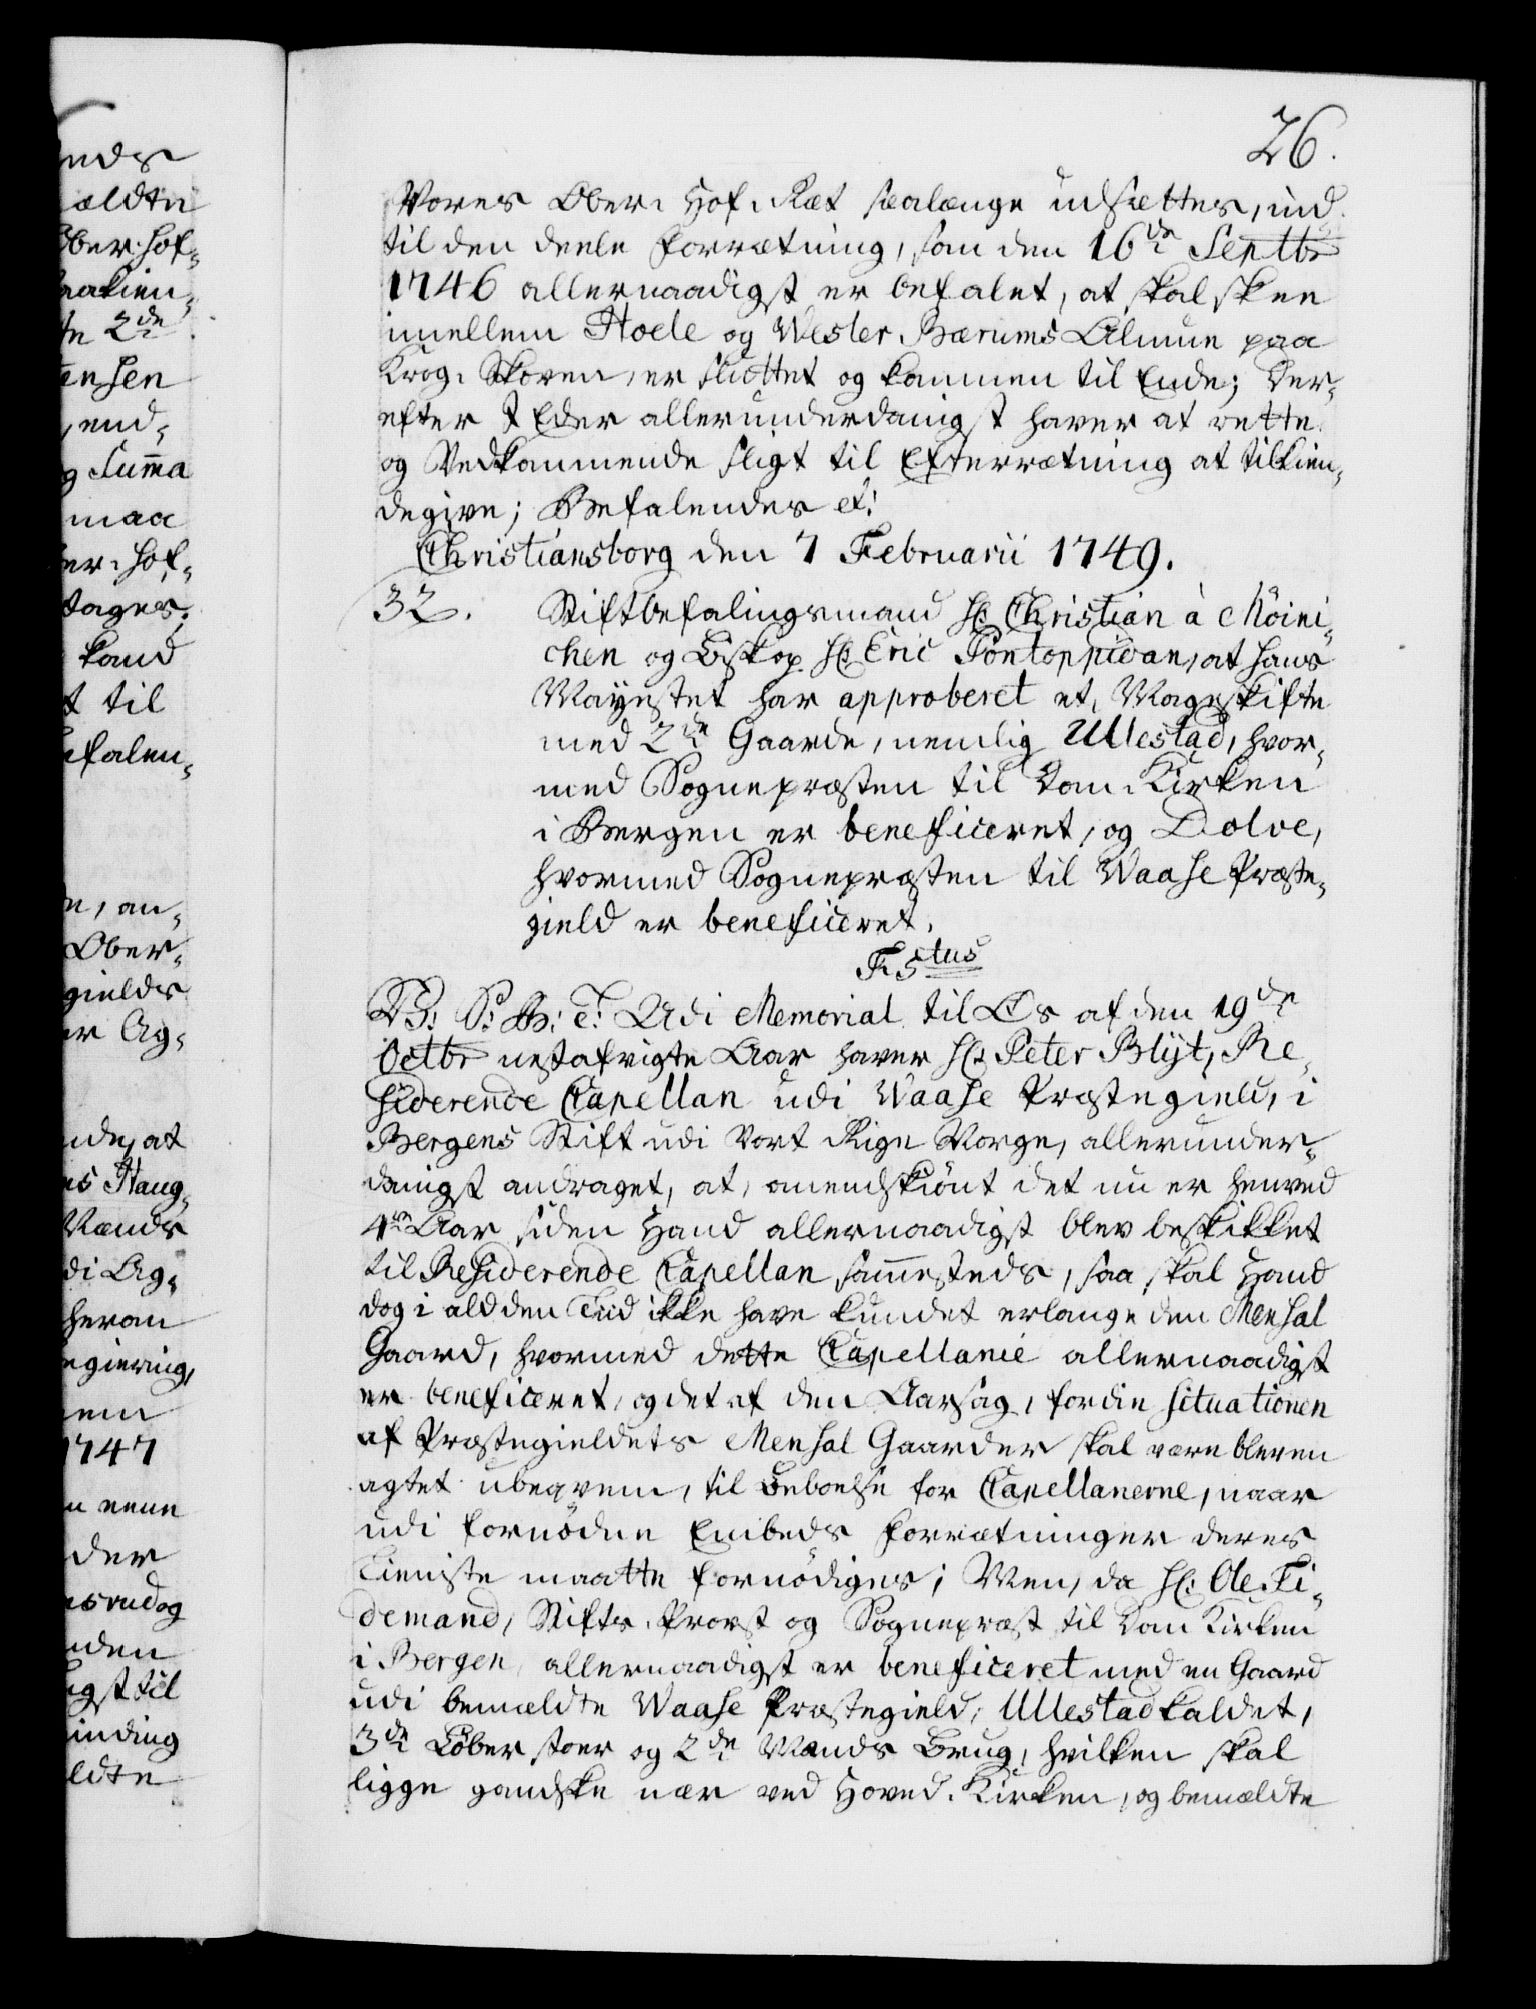 26.
Vores Ober-Hof-Ræt saalænge udsættes, ind-
til den deele Forrætning, som den 16de Septbr
1746 allernaadigst er befalet, at skal skee
imellem Hoele og Wester Bærums Almue paa
Krog-Skoven, er sluttet og kommen til Ende; Der-
efter I Eder allerunderdanigst haver at rette
og Vedkommende sligt til Efterrætning at tilkien-
degive; Befalendes etc:
Christiansborg den 7 Februarii 1749.
32. Stiftbefalingsmand Hr: Christian à Möini-
chen og Biskop Hr: Eric Pontoppidan, at Hans
Mayestet har approberet et Mageskifte
med 2de Gaarde, nemlig Ullestad, hvor-
med Sognepræsten til Dom-Kirken
i Bergen er beneficeret, og Dolve,
hvormed Sognepræsten til Waase Præste-
gield er beneficeret.
F. 5tus
V: S: G: T: Udi Memorial til Os af den 19de
Octbr nestafvigte Aar haver Hr: Peter Blyt, Re-
siderende Capellan udi Waase Præstegield, i
Bergens Stift udi Vort Rige Norge, allerunder-
danigst andraget, at, omendskiönt det nu er henved
4re Aar siden Hand allernaadigst blev beskikket
til Residerende Capellan sammesteds, saa skal Hand
dog i ald den Tiid ikke have kundet erlange den Mensal
Gaard, hvormed dette Capellanie allernaadigst
er beneficeret, og det af den Aarsag, fordie situationen
af Præstegieldets Mensal Gaarder skal være bleven
agtet ubeqvem, til Beboelse for Capellanerne, naar
udi fornödne Embeds Forrætninger deres
Tieniste maatte fornödiges; Men, da Hr: Ole Ti-
demand, Stifts-Provst og Sognepræst til Dom Kirken
i Bergen, allernaadigst er beneficeret med en Gaard
udi bemældte Waase Præstegield, Ullestad kaldet,
3de Löber stoer og 2de Mænds Brug, hvilken skal
ligge gandske nær ved Hoved-Kirken, og bemældte